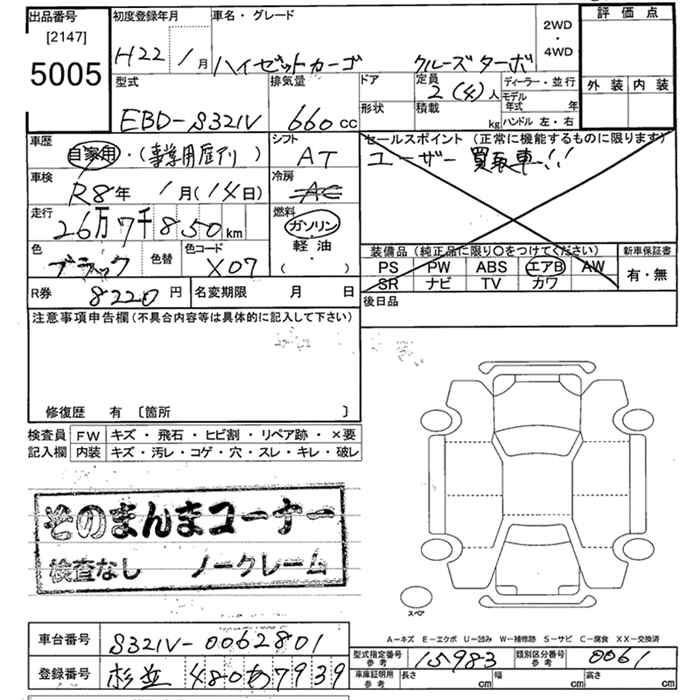 出品番号 初度登録年月 車名・グレード 2WD ・ 4WD 評価点
[2147] 5005 H22年 1月 ハイゼットカーゴ クルーズターボ 外装 内装
型式 排気量 ドア 定員 2(4)人 ディーラー・並行
EBD-S321V 660cc 形状 積載 kg モデル年式 年 ハンドル 左・右
車歴 自家用・(事業用 歴アリ) シフト AT セールスポイント(正常に機能するものに限ります)
ユーザー買取車!!
車検 R8年 1月(14日) 冷房 AC
走行 26万7千850km 燃料 ガソリン
軽油
(・)
色 ブラック 色替 色コード X07
装備品(純正品に限り○をつけてください) 新車保証書
PS PW ABS エアB AW 有・無
SR ナビ TV カワ
R券 8220円 名変期限 月 日 後日品
注意事項申告欄(不具合内容等は具体的に記入して下さい)
修復歴 有 [箇所 ]
検査員 FW キズ・飛石・ヒビ割・リペア跡・×要
記入欄 内装 キズ・汚レ・コゲ・穴・スレ・キレ・破レ
そのまんまコーナー
検査なし ノークレーム
スペア
A-キズ E-エクボ U-凹み W-補修跡 S-サビ C-腐食 XX-交換済
車台番号 S321V-0062801
型式指定番号 参考 15983 類別区分番号 参考 0061
登録番号 杉並 480あ7939
車庫証明用 参考 長さ cm 幅 cm 高さ cm